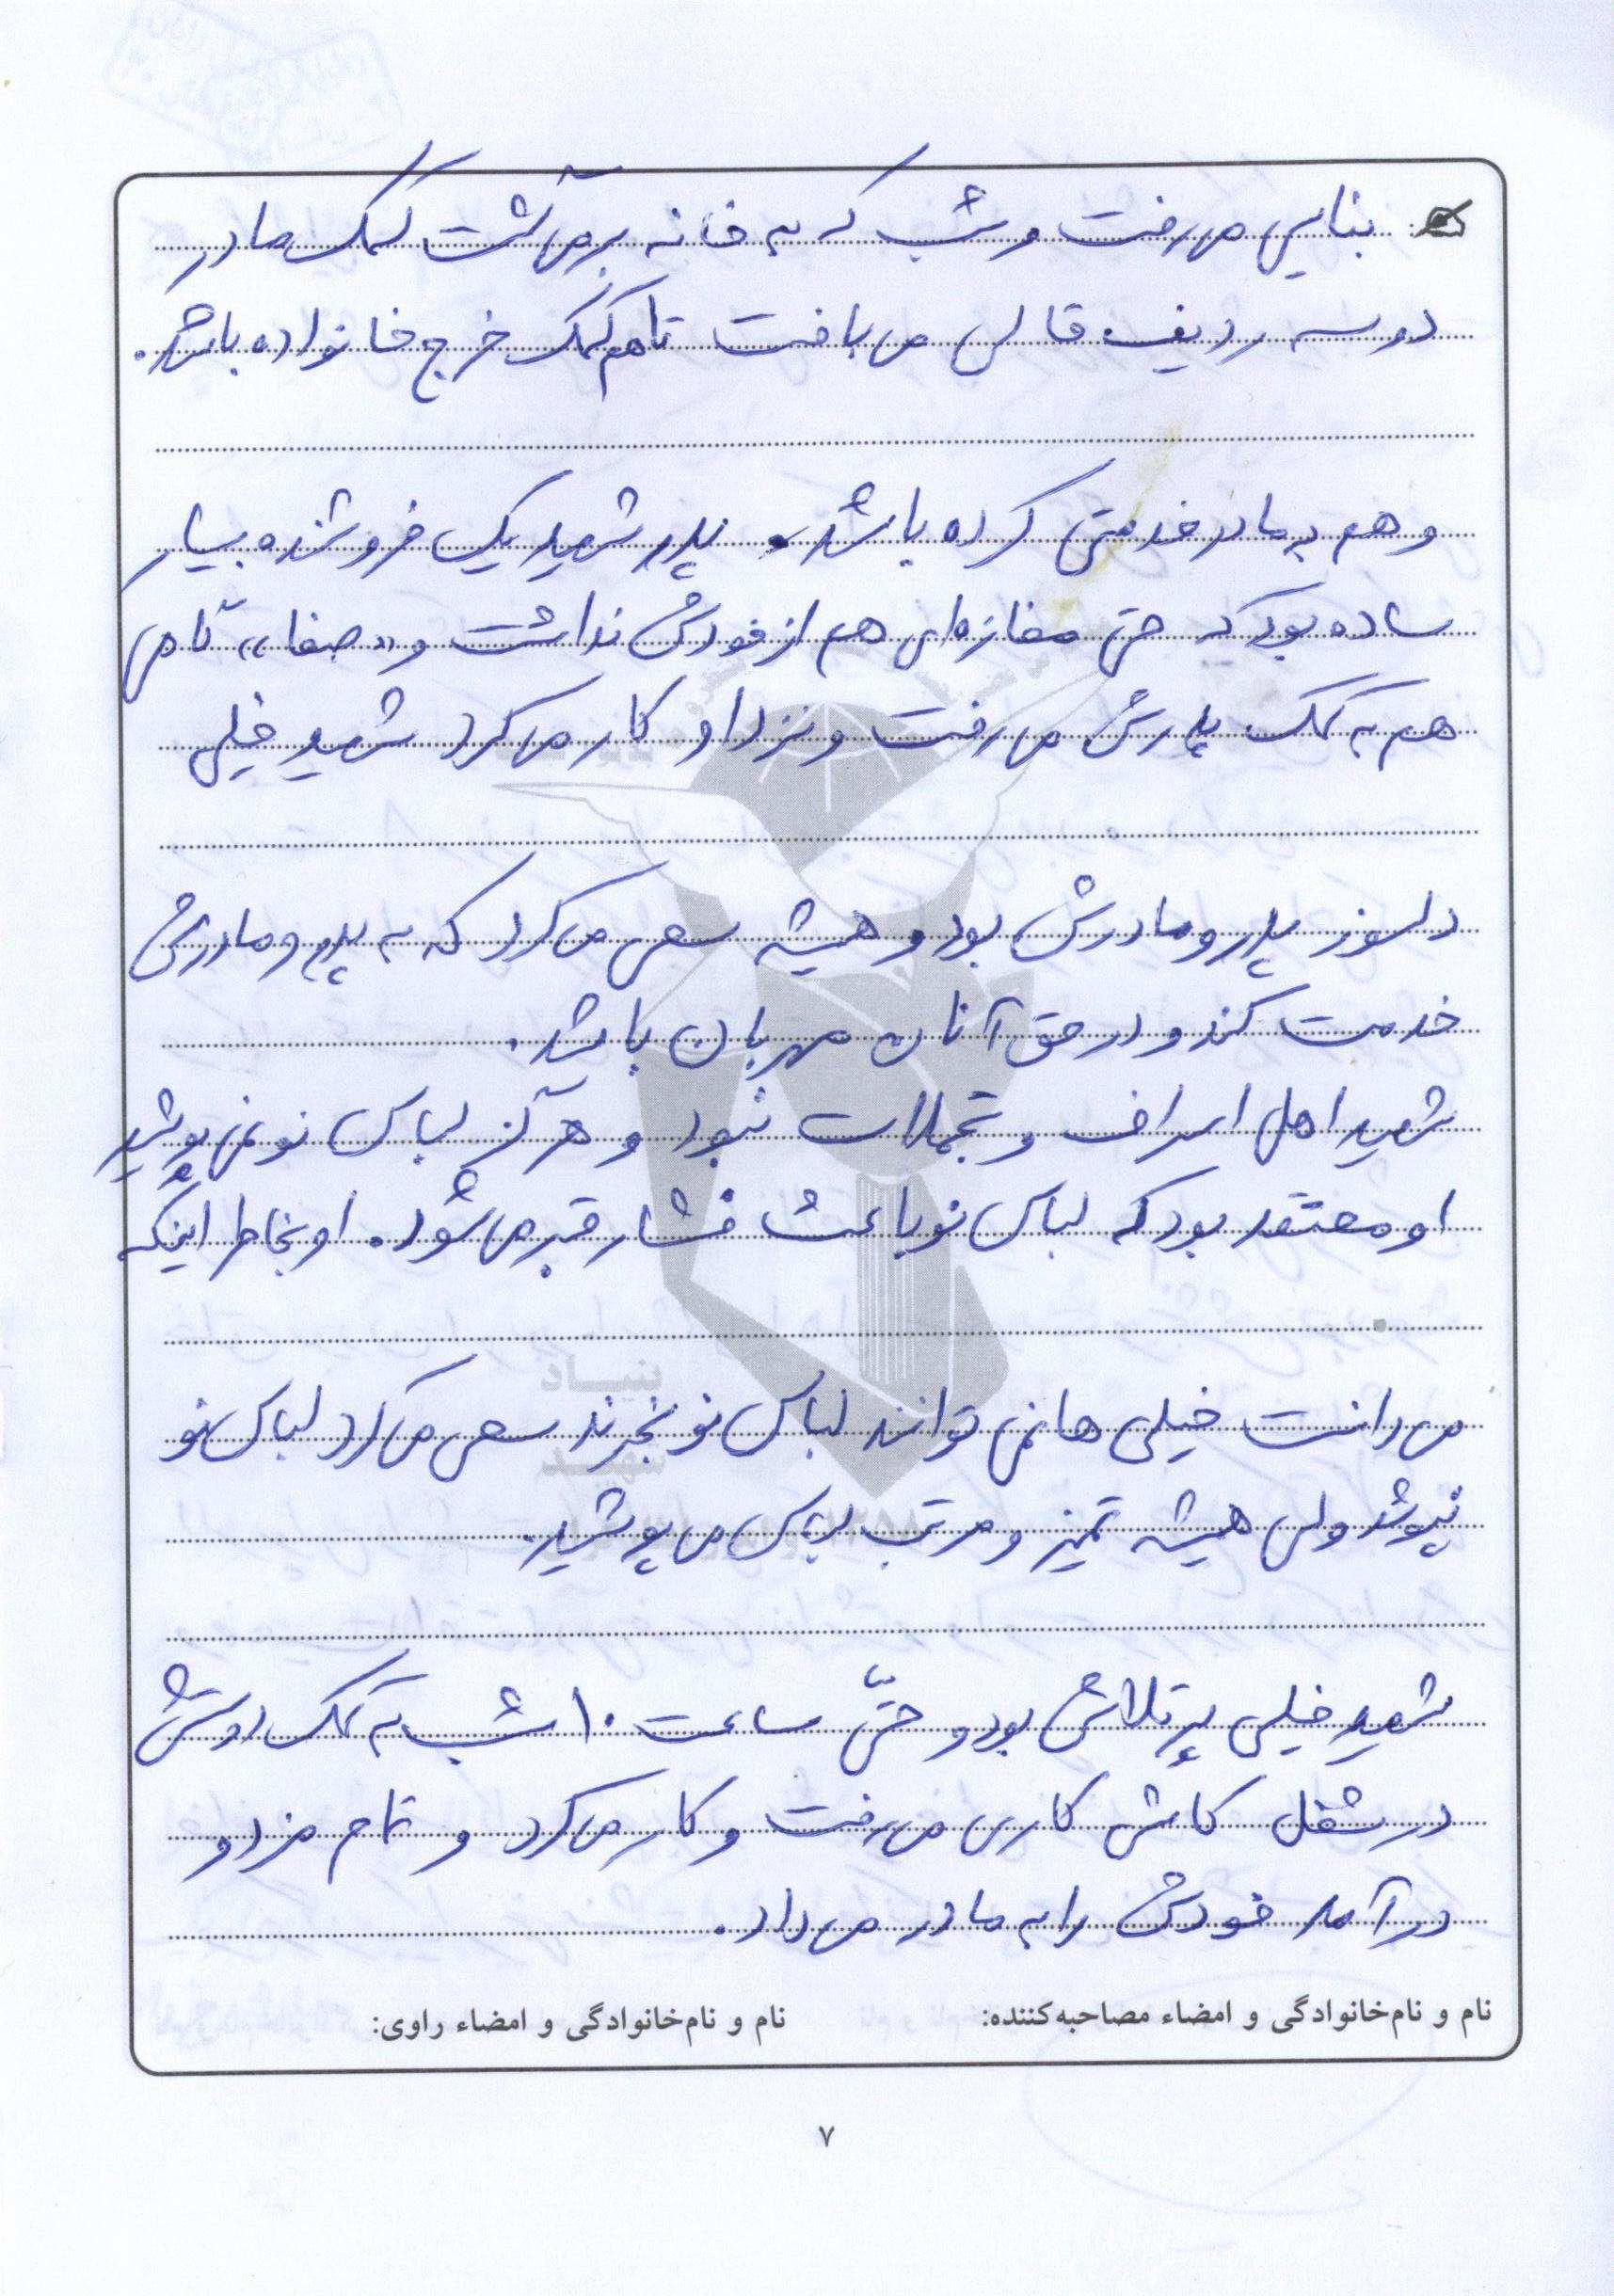 بنایی می‌رفت و شب که به خانه برمی‌گشت کمک مادر
دو سه ردیف قالی می‌بافت تا هم کمک خرج خانواده باشد.
و هم به مادر خدمتی کرده باشد. پدر شهید یک فروشنده بسیار
ساده بود که حتی مغازه‌ای هم از خودش نداشت و «صفا»
هم به کمک پدرش می‌رفت و نزد او کار می‌کرد شهید خیلی
دلسوز پدر و مادرش بود و همیشه سعی می‌کرد که به پدر و مادرش
خدمت کند و در حق آنان مهربان باشد.
شهید اهل اسراف و تجملات نبود و هرگز لباس نو نمی‌پوشید
او معتقد بود که لباس نو باعث فشار قبر می‌شود. او بخاطر اینکه
می‌دانست خیلی ها نمی‌توانند لباس نو بخرند سعی می‌کرد لباس نو
نپوشد ولی همیشه تمیز و مرتب لباس می‌پوشید.
شهید خیلی پرتلاش بود و حتّی ساعت ۱۰ شب به کمک دوستش
در شغل کاشی کاری می‌رفت و کار می‌کرد و تمام مزد و
درآمد خودش را به مادر می‌داد.
نام و نام‌خانوادگی و امضاء مصاحبه‌کننده: نام و نام‌خانوادگی و امضاء راوی:
۷